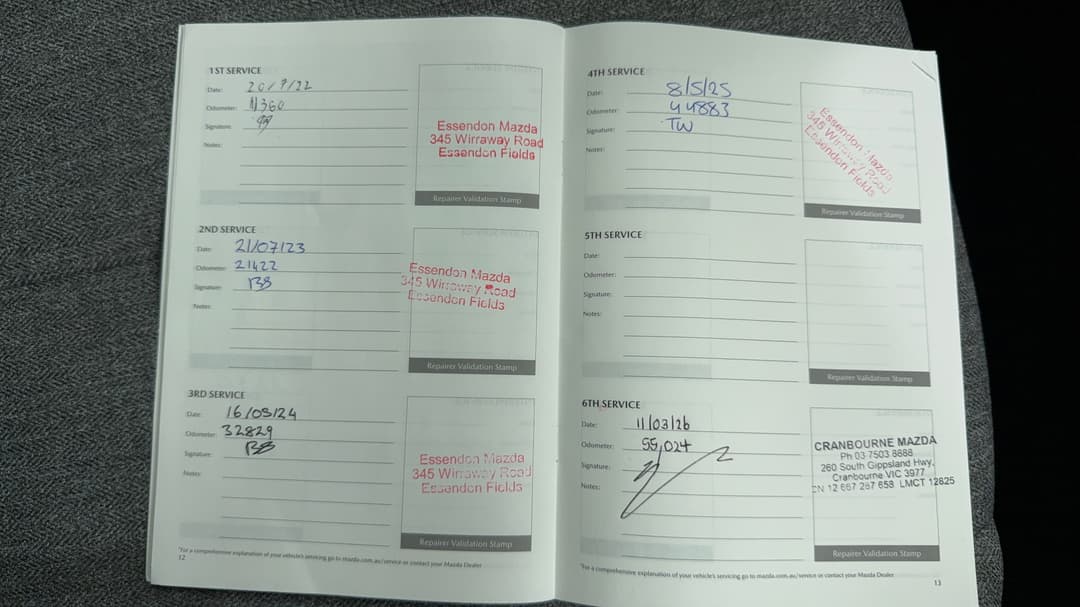 1ST SERVICE
Date: 20/7/22
Odometer: 11360
Signature:
Notes:
Essendon Mazda
345 Wirraway Road
Essendon Fields
Repairer Validation Stamp
2ND SERVICE
Date: 21/07/23
Odometer: 21422
Signature: BB
Notes:
Essendon Mazda
345 Wirraway Road
Essendon Fields
Repairer Validation Stamp
3RD SERVICE
Date: 16/05/24
Odometer: 32829
Signature: BB
Notes:
Essendon Mazda
345 Wirraway Road
Essendon Fields
Repairer Validation Stamp
*For a comprehensive explanation of your vehicle's servicing go to mazda.com.au/service or contact your Mazda Dealer
12
4TH SERVICE
Date: 8/5/25
Odometer: 44883
Signature: TW
Notes:
Essendon Mazda
345 Wirraway Road
Essendon Fields
Repairer Validation Stamp
5TH SERVICE
Date:
Odometer:
Signature:
Notes:
Repairer Validation Stamp
6TH SERVICE
Date: 11/03/26
Odometer: 55,024
Signature:
Notes:
CRANBOURNE MAZDA
Ph 03 7503 8888
260 South Gippsland Hwy,
Cranbourne VIC 3977
12 667 287 658 LMCT 12825
Repairer Validation Stamp
*For a comprehensive explanation of your vehicle's servicing go to mazda.com.au/service or contact your Mazda Dealer
13